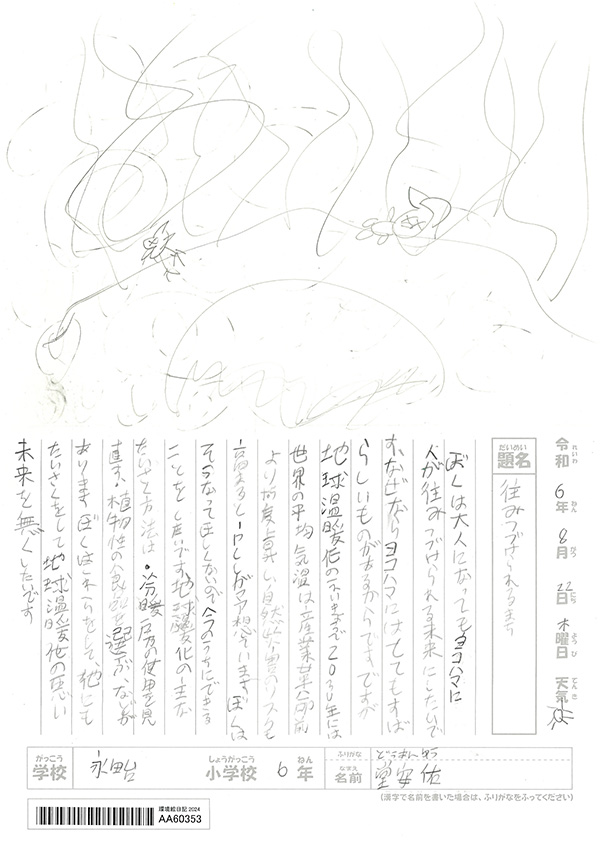 令和 6年 8月 22日 木曜日 天気
れいわ ねん がつ にち ようび てんき
だいめい
題名
住みつづけられるまち
ぼくは大人になってもヨコハマに
人が住みつづけられる未来にしたいで
す。なぜならヨコハマにはとてもすば
らしいものがあるからです。ですが
地球温暖化のえいきょうで2030年には
世界の平均気温は産業革命前
より1.5度上昇し自然災害のリスクも
高まるとIPCCが予想しています。ぼくは
そうなってほしくないので今のうちにできる
ことをしたいです。地球温暖化の主な
たいさく方法は・冷暖房の使用を見
直す、植物性の食品を選ぶ、などが
あります。ぼくはこれらをして、他にも
たいさくをして地球温暖化の悪い
未来を無くしたいです
がっこう
学校
永田台
しょうがっこう
小学校
6
ねん
年
ふりがな
なまえ
名前
堂安 佑
(漢字で名前を書いた場合は、ふりがなをふってください)
環境絵日記 2024
AA60353